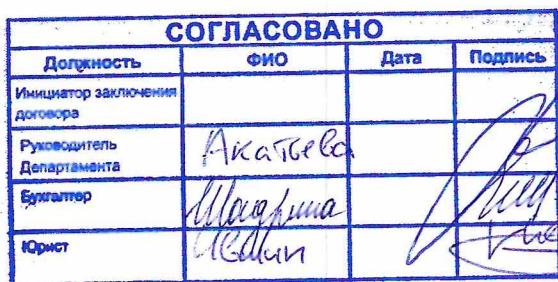 СОГЛАСОВАНО
Должность ФИО Дата Подпись
Инициатор заключения
договора
Руководитель
Департамента Акатьева
Бухгалтер Шадрина
Юрист